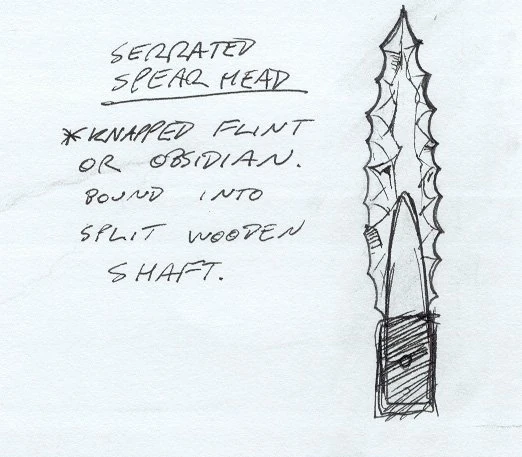 SERRATED
SPEAR HEAD
*KNAPPED FLINT
OR OBSIDIAN.
BOUND INTO
SPLIT WOODEN
SHAFT.